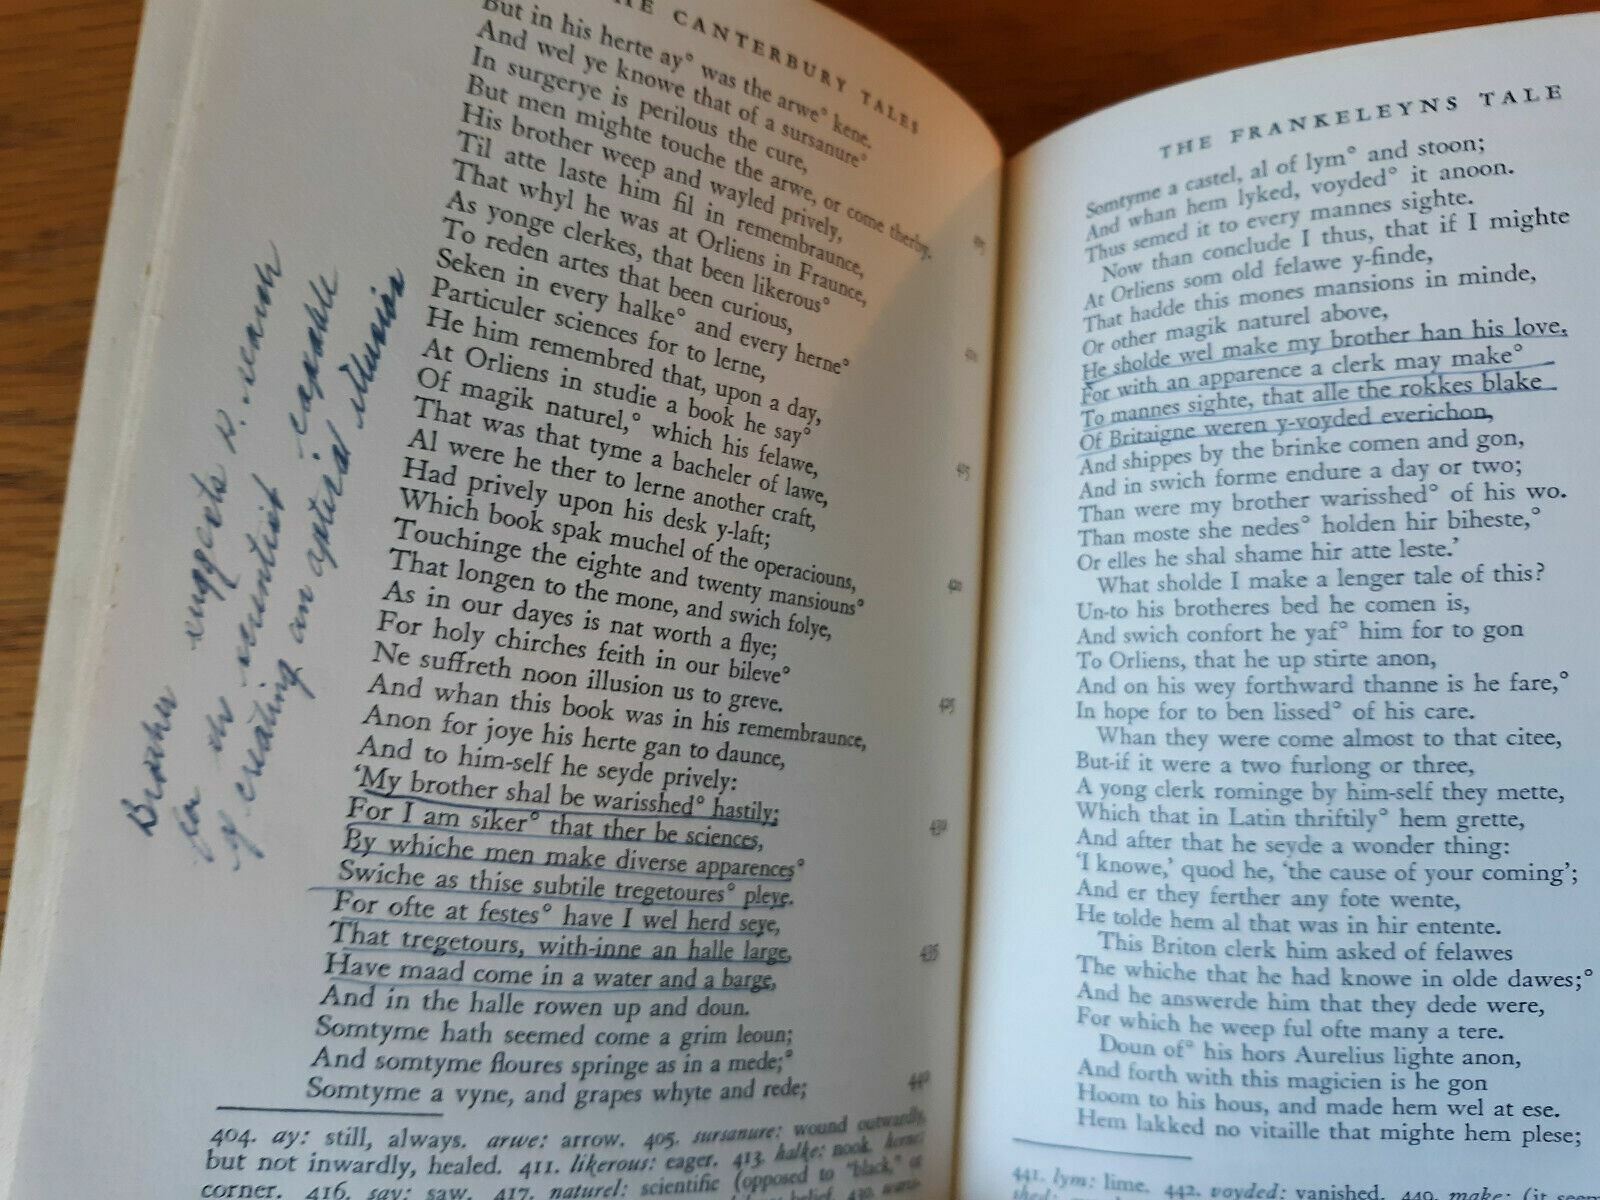 THE CANTERBURY TALES
But in his herte ay° was the arwe° kene.
And wel ye knowe that of a sursanure°
In surgerye is perilous the cure,
But men mighte touche the arwe, or come therby.
His brother weep and wayled prively,
Til atte laste him fil in remembraunce,
That whyl he was at Orliens in Fraunce,
As yonge clerkes, that been likerous°
To reden artes that been curious,
Seken in every halke° and every herne°
Particuler sciences for to lerne,
He him remembred that, upon a day,
At Orliens in studie a book he say°
Of magik naturel,° which his felawe,
That was that tyme a bacheler of lawe,
Al were he ther to lerne another craft,
Had prively upon his desk y-laft;
Which book spak muchel of the operaciouns,
Touchinge the eighte and twenty mansiouns°
That longen to the mone, and swich folye,
As in our dayes is nat worth a flye;
For holy chirches feith in our bileve°
Ne suffreth noon illusion us to greve.
And whan this book was in his remembraunce,
Anon for joye his herte gan to daunce,
And to him-self he seyde prively:
'My brother shal be warisshed° hastily;
For I am siker° that ther be sciences,
By whiche men make diverse apparences°
Swiche as thise subtile tregetoures° pleye.
For ofte at festes° have I wel herd seye,
That tregetours, with-inne an halle large,
Have maad come in a water and a barge,
And in the halle rowen up and doun.
Somtyme hath seemed come a grim leoun;
And somtyme floures springe as in a mede;°
Somtyme a vyne, and grapes whyte and rede;
405
410
415
420
425
430
435
440
Brother suggests a search
for the scientist capable
of creating an optical illusion
404. ay: still, always. arwe: arrow. 405. sursanure: wound outwardly,
but not inwardly, healed. 411. likerous: eager. 413. halke: nook. herne:
corner. 416. say: saw. 417. naturel: scientific (opposed to "black," or
THE FRANKELEYNS TALE
Somtyme a castel, al of lym° and stoon;
And whan hem lyked, voyded° it anoon.
Thus semed it to every mannes sighte.
Now than conclude I thus, that if I mighte
At Orliens som old felawe y-finde,
That hadde this mones mansions in minde,
Or other magik naturel above,
He sholde wel make my brother han his love.
For with an apparence a clerk may make°
To mannes sighte, that alle the rokkes blake
Of Britaigne weren y-voyded everichon,
And shippes by the brinke comen and gon,
And in swich forme endure a day or two;
Than were my brother warisshed° of his wo.
Than moste she nedes° holden hir biheste,°
Or elles he shal shame hir atte leste.'
What sholde I make a lenger tale of this?
Un-to his brotheres bed he comen is,
And swich confort he yaf° him for to gon
To Orliens, that he up stirte anon,
And on his wey forthward thanne is he fare,°
In hope for to ben lissed° of his care.
Whan they were come almost to that citee,
But-if it were a two furlong or three,
A yong clerk rominge by him-self they mette,
Which that in Latin thriftily° hem grette,
And after that he seyde a wonder thing:
'I knowe,' quod he, 'the cause of your coming';
And er they ferther any fote wente,
He tolde hem al that was in hir entente.
This Briton clerk him asked of felawes
The whiche that he had knowe in olde dawes;°
And he answerde him that they dede were,
For which he weep ful ofte many a tere.
Doun of° his hors Aurelius lighte anon,
And forth with this magicien is he gon
Hoom to his hous, and made hem wel at ese.
Hem lakked no vitaille that mighte hem plese;
441. lym: lime. 442. voyded: vanished. 449. make: (it seem